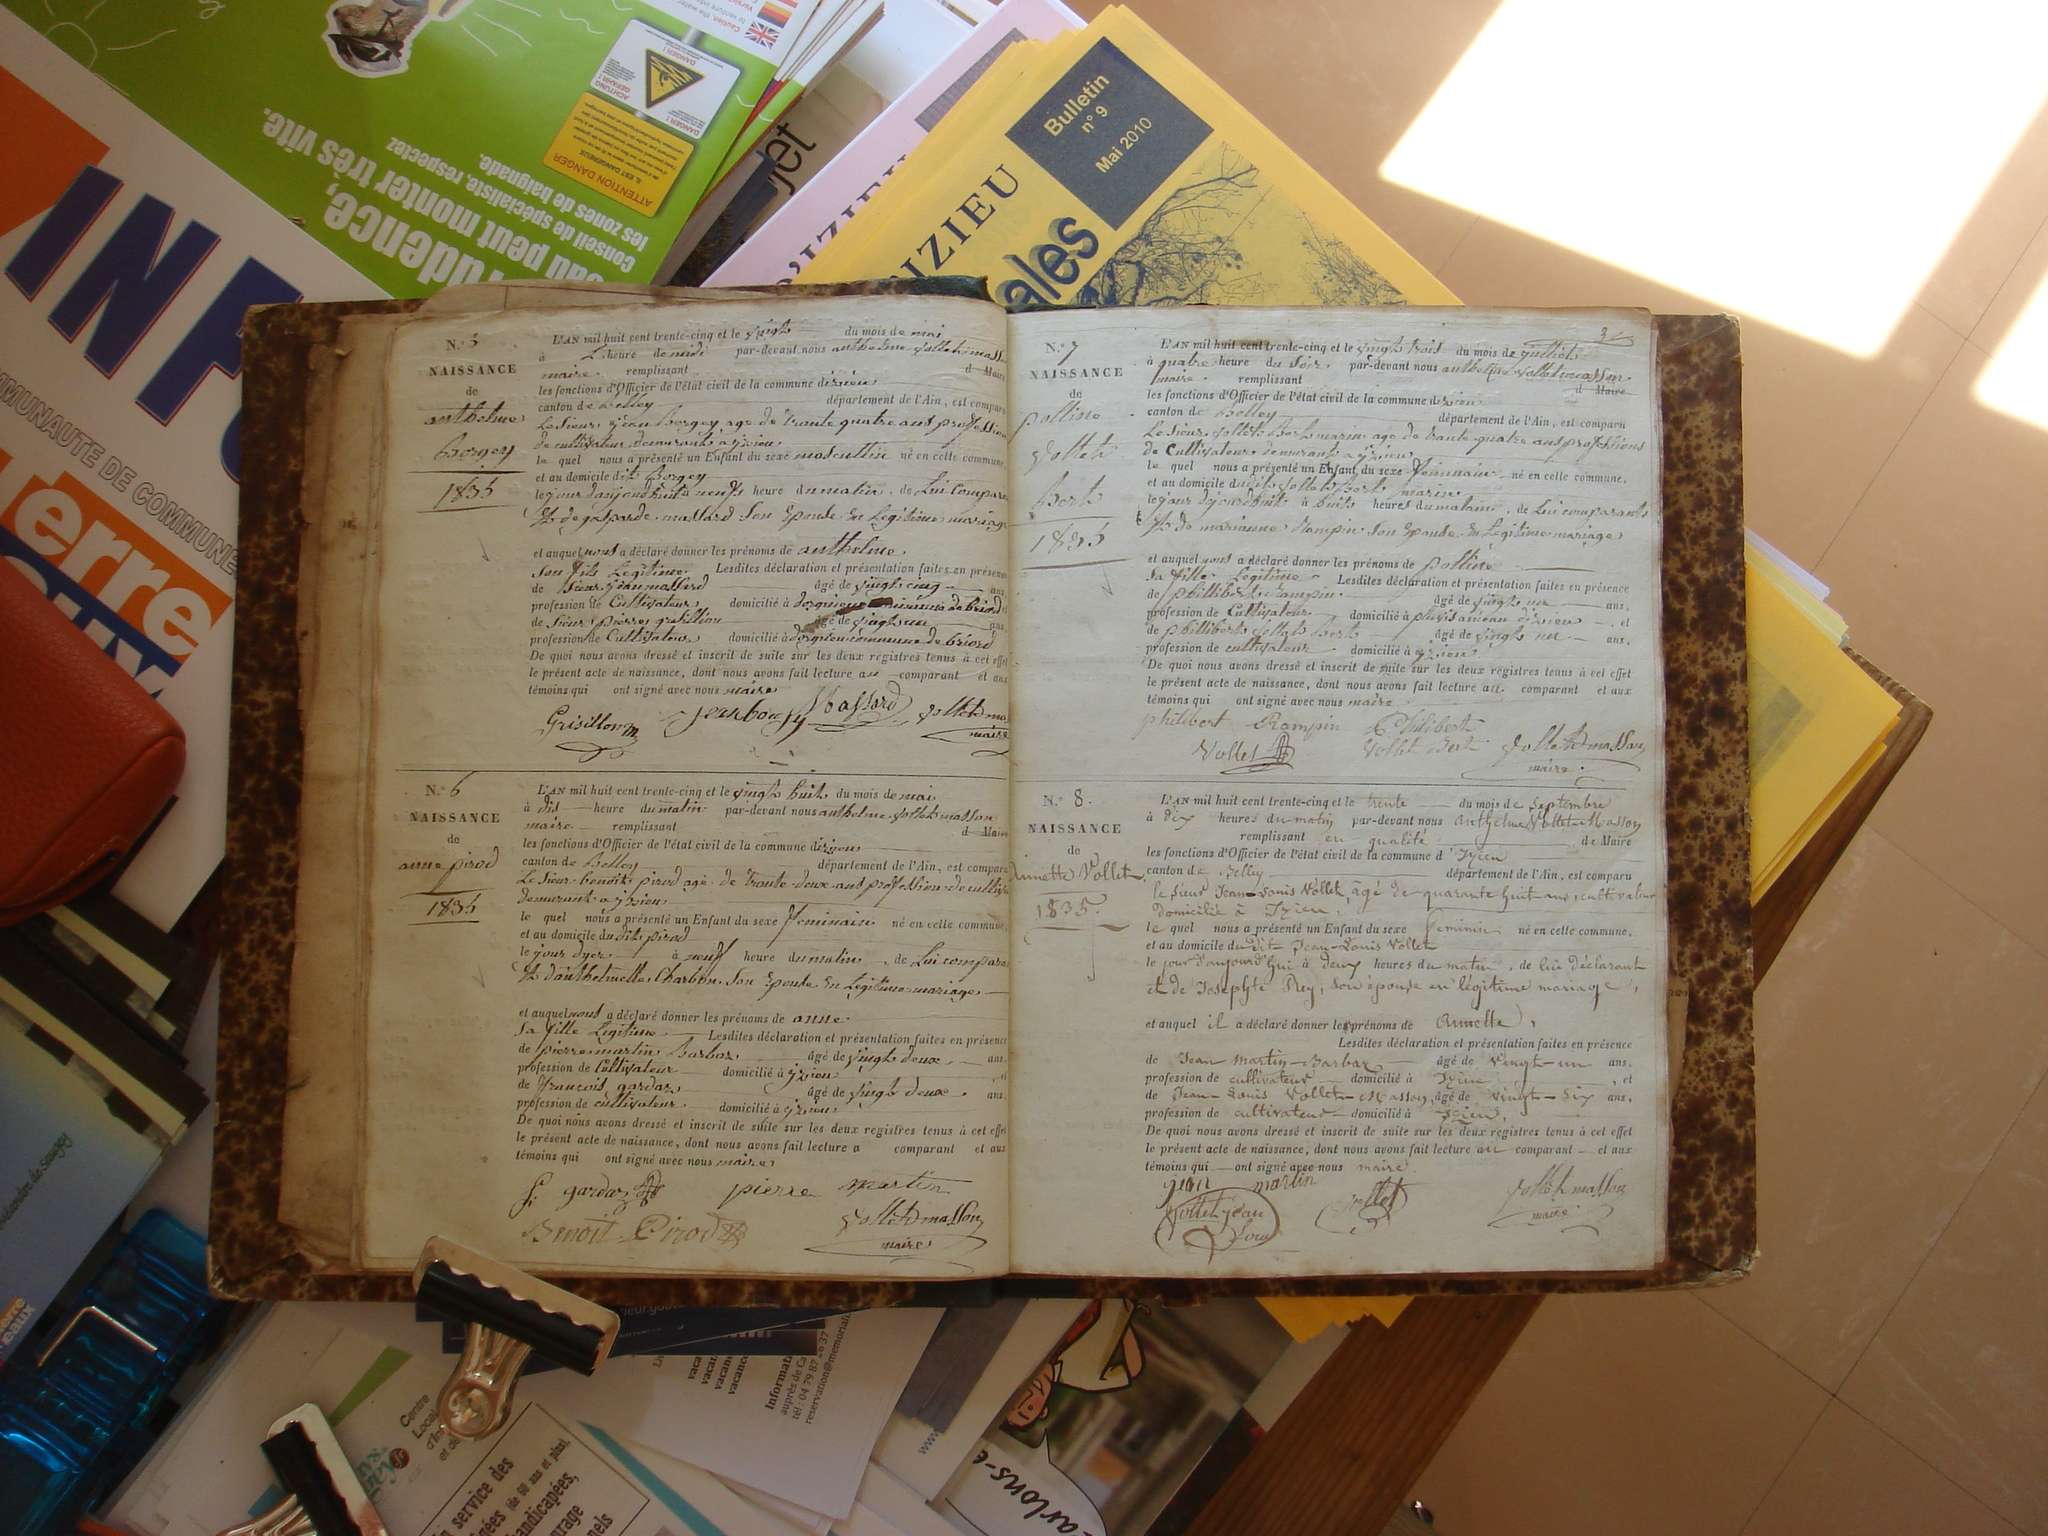 N.° 5
NAISSANCE
de
anthelme
Borgey
1835
L'AN mil huit cent trente-cinq et le vingt du mois de mai
à heure de midi par-devant nous anthelme vollet masson
maire remplissant d Maire
les fonctions d'Officier de l'état civil de la commune dizieu
canton de Belley département de l'Ain, est comparu
Le Sieur jean Borgey age de trante quatre ans profession
de cultivateur demurant a yzieu
le quel nous a présenté un Enfant du sexe mascullin né en celle commune,
et au domicile dit Borgey
le jour danjourdhuit à neuf heure du matin, de Lui Compara
Et de gasparde massard Son Epouse En Legitime mariage
et auquel nous a déclaré donner les prénoms de anthelme
Son fils Legitime Lesdites déclaration et présentation faites en présence
de Sieur jean massard âgé de vingt cinq ans,
profession de Cultivateur domicilié à commune de briord et
de Sieur pierre âgé de vingt un ans,
profession de Cultivateur domicilié à commune de briord
De quoi nous avons dressé et inscrit de suite sur les deux registres tenus à cet effet
le présent acte de naissance, dont nous avons fait lecture au comparant et aux
témoins qui ont signé avec nous maire
jean borgey Massard vollet mas
maire
N.° 6
NAISSANCE
de
anne pirod
1835
L'AN mil huit cent trente-cinq et le vingt huit du mois de mai
à dis heure du matin par-devant nous anthelme vollet masson
maire remplissant d Maire
les fonctions d'Officier de l'état civil de la commune dizieu
canton de Belley département de l'Ain, est comparu
Le Sieur benoit pirod agé de trante deux ans profession de cultiva
demurant a yzieu
le quel nous a présenté un Enfant du sexe feminain né en celle commune,
et au domicile du dit pirod
le jour dyer à neuf heure du matin, de Lui compara
Et danthelmette Charbon Son Epouse En Legitime mariage
et auquel nous a déclaré donner les prénoms de anne
Sa fille Legitime Lesdites déclaration et présentation faites en présence
de pierre martin Barbaz âgé de vingt deux ans,
profession de Cultivateur domicilié à yzieu, et
de francois gardaz âgé de vingt deux ans,
profession de cultivateur domicilié à yzieu
De quoi nous avons dressé et inscrit de suite sur les deux registres tenus à cet effet
le présent acte de naissance, dont nous avons fait lecture a comparant et aux
témoins qui ont signé avec nous maire
f. gardaz pierre martin
Benoit Pirod vollet masson
maire
N.° 7
NAISSANCE
de
polline
vollet
Bert
1835
L'AN mil huit cent trente-cinq et le vingt trois du mois de julliet
à quatre heure du soir par-devant nous anthelme vollet masson
maire remplissant d Maire
les fonctions d'Officier de l'état civil de la commune dizieu
canton de Belley département de l'Ain, est comparu
Le Sieur vollet Bert marin age de trante quatre ans professions
de Cultivateur demurant a yzieu
le quel nous a présenté un Enfant du sexe feminain né en celle commune,
et au domicile du dit vollet Bert marin
le jour dojourdhuit à huits heures du matain, de Lui comparants
Et de marianne Rampin Son Epouse En Legitime mariage
et auquel nous a déclaré donner les prénoms de polline
Sa fille Legitime Lesdites déclaration et présentation faites en présence
de phillibert Rampin âgé de vingt un ans,
profession de Cultivateur domicilié à, et
de phillibert vollet Bert âgé de vingt un ans,
profession de cultivateur domicilié à yzieu
De quoi nous avons dressé et inscrit de suite sur les deux registres tenus à cet effet
le présent acte de naissance, dont nous avons fait lecture au comparant et aux
témoins qui ont signé avec nous maire
philibert Rampin Philibert
Vollet Vollet Bert vollet masson
maire
N.° 8.
NAISSANCE
de
Annette Vollet
1835.
L'AN mil huit cent trente-cinq et le trente du mois de Septembre
à dix heures du matin par-devant nous Anthelme Vollet-Masson
remplissant en qualité de Maire
les fonctions d'Officier de l'état civil de la commune d'Izieu
canton de Belley département de l'Ain, est comparu
le Sieur Jean-Louis Vollet, âgé de quarante huit ans, cultivateur
domicilié à Izieu,
le quel nous a présenté un Enfant du sexe feminin né en celle commune,
et au domicile du dit Jean-Louis Vollet
le jour d'aujourd'hui à deux heures du matin, de lui déclarant
et de Josephte Rey, son épouse en légitime mariage,
et auquel il a déclaré donner les prénoms de Annette,
Lesdites déclaration et présentation faites en présence
de Jean Martin-Barbaz âgé de vingt-un ans,
profession de cultivateur domicilié à Izieu, et
de Jean-Louis Vollet-Masson, âgé de vingt-six ans,
profession de cultivateur domicilié à Izieu,
De quoi nous avons dressé et inscrit de suite sur les deux registres tenus à cet effet
le présent acte de naissance, dont nous avons fait lecture au comparant et aux
témoins qui ont signé avec nous maire.
jean martin
Vollet jean Loui vollet vollet masson
maire
INFO
COMMUNAUTE DE COMMUNE
erre
Prudence,
eau peut monter très vite.
Conseil de spécialiste, respectez
les zones de baignade.
ATTENTION DANGER
DANGER !
ACHTUNG
GEFAHR !
jet
D'IZIEU
IZIEU
ales
Bulletin
n° 9
Mai 2010
Centre
Local
d'In
et de
service des
(de 60 ans et plus),
andicapées,
urage
nels
vaca
vacan
vacance
Informati
auprès de Ca
tél : 04 79 87
reservation@memorial
www.
arlons-e